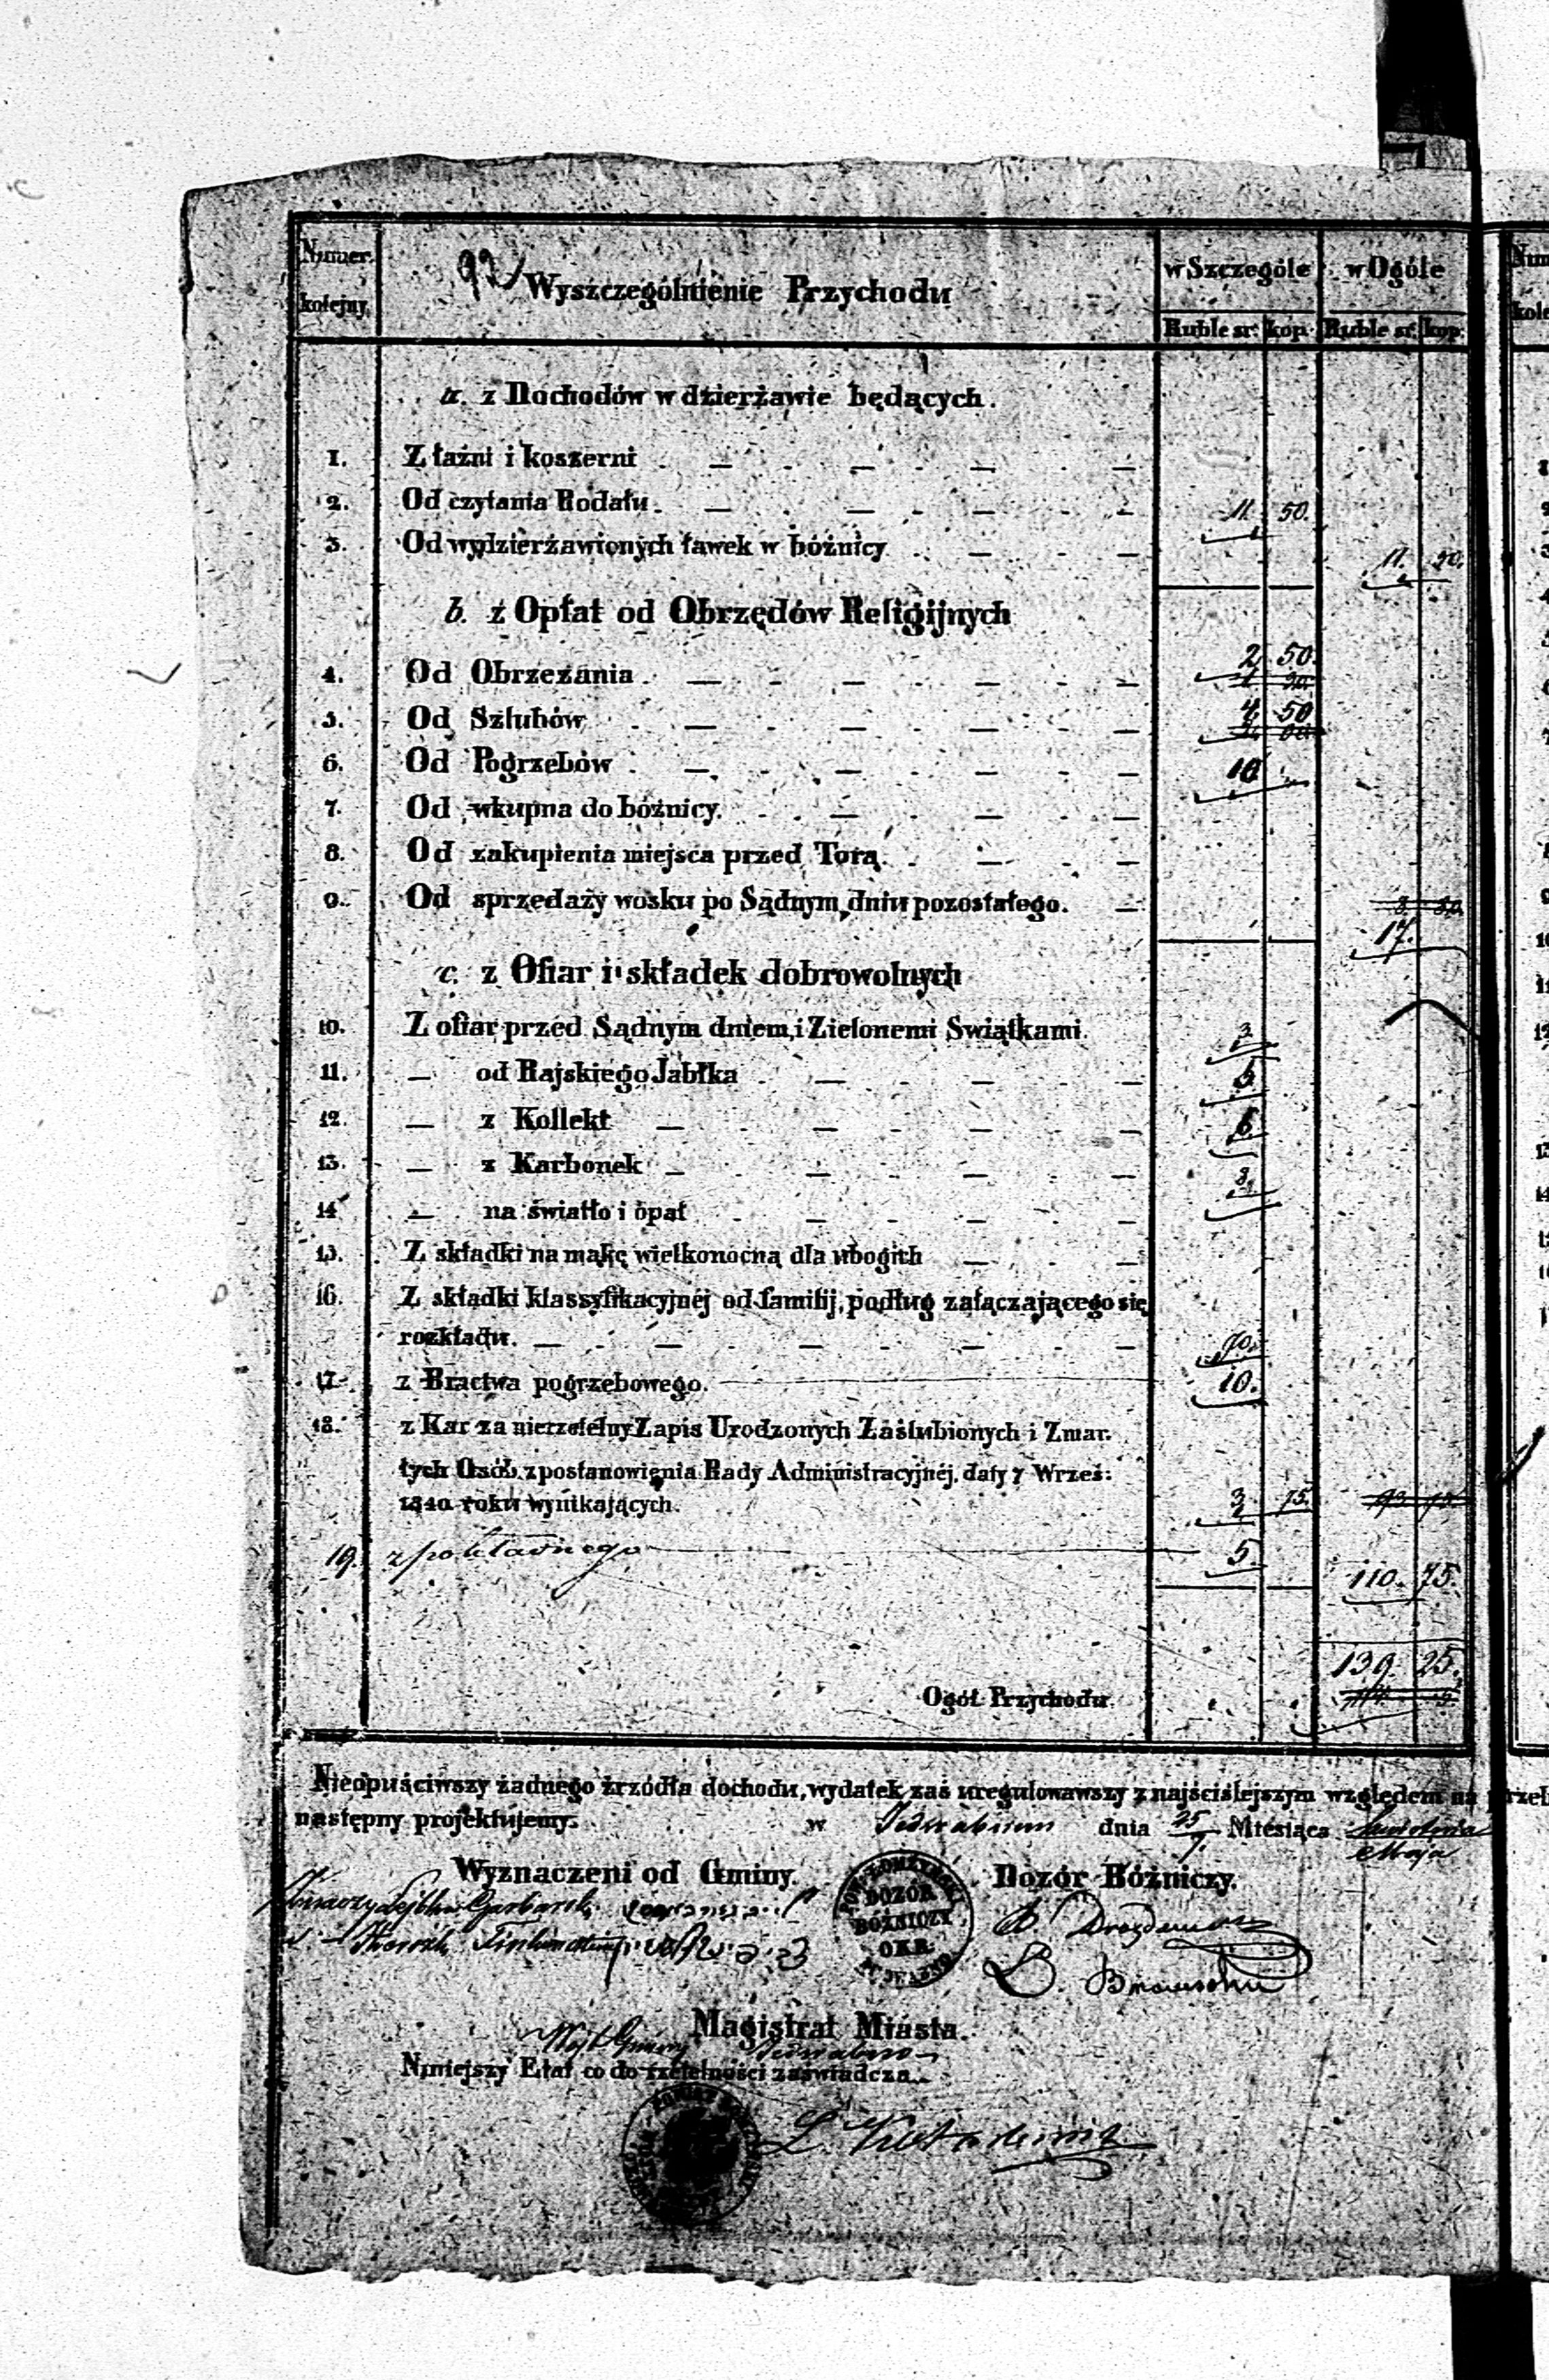 Numer kolejny.
92
Wyszczególnienie Przychodu
w Szczególe w Ogóle
Ruble sr: kop. Ruble sr: kop.
a. z Dochodów w dzierżawie będących.
1. Z łaźni i koszerni
2. Od czytania Rodału. 11. 50.
3. Od wydzierżawionych ławek w bóźnicy 11. 50.
b. z Opłat od Obrzędów Religijnych
4. Od Obrzezania 2. 50.
5. Od Szlubów 4. 50
6. Od Pogrzebów 10.
7. Od wkupna do bóźnicy.
8. Od zakupienia miejsca przed Torą.
9. Od sprzedaży wosku po Sądnym dniu pozostałego.
17.
c. z Ofiar i składek dobrowolnych
10. Z ofiar przed Sądnym dniem, i Zielonemi Swiątkami
11. — od Rajskiego Jabłka
12. — z Kollekt 6.
13. — z Karbonek 3.
14 — na światło i opał
15. Z składki na mąkę wielkonocną dla ubogich
16. Z składki klassyfikacyjnéj od familij, podług załączającego się
rozkładu. 70.
17. z Bractwa pogrzebowego. 10.
18. z Kar za nierzetelny Zapis Urodzonych Zaślubionych i Zmar-
łych Osób, z postanowienia Rady Administracyjnéj, daty 7 Wrześ:
1840 roku wynikających. 3. 75.
19. z pokładnego 5.
110. 75.
139. 25.
Ogół Przychodu.
Nieopuściwszy żadnego źrzódła dochodu, wydatek zaś uregulowawszy z najściślejszym względem na
następny projektujemy. w Jedwabnem dnia 25/7. Miesiąca Kwietnia
Maja
Wyznaczeni od Gminy. Dozór Bóżniczy.
DOZÓR BÓŻNICZY OKR.
Lejbko Garbarsk
Magistrat Miasta.
Wójt Gminy Jedwabno
Niniejszy Etat co do rzetelności zaświadcza.